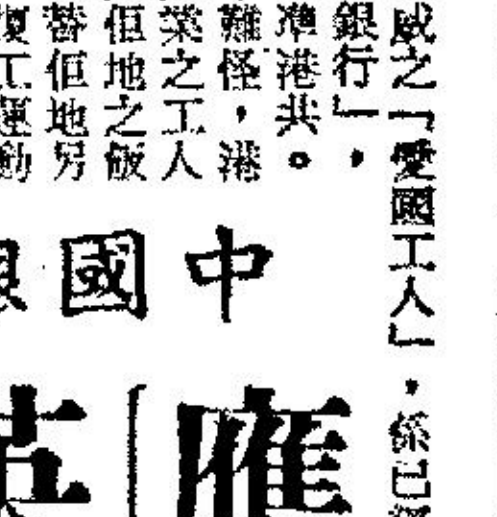 威之「愛國工人」，係已
銀行」，
準港共。
難怪，港
業之工人
佢地之飯
替佢地另
復工運動
中國銀
匯
英